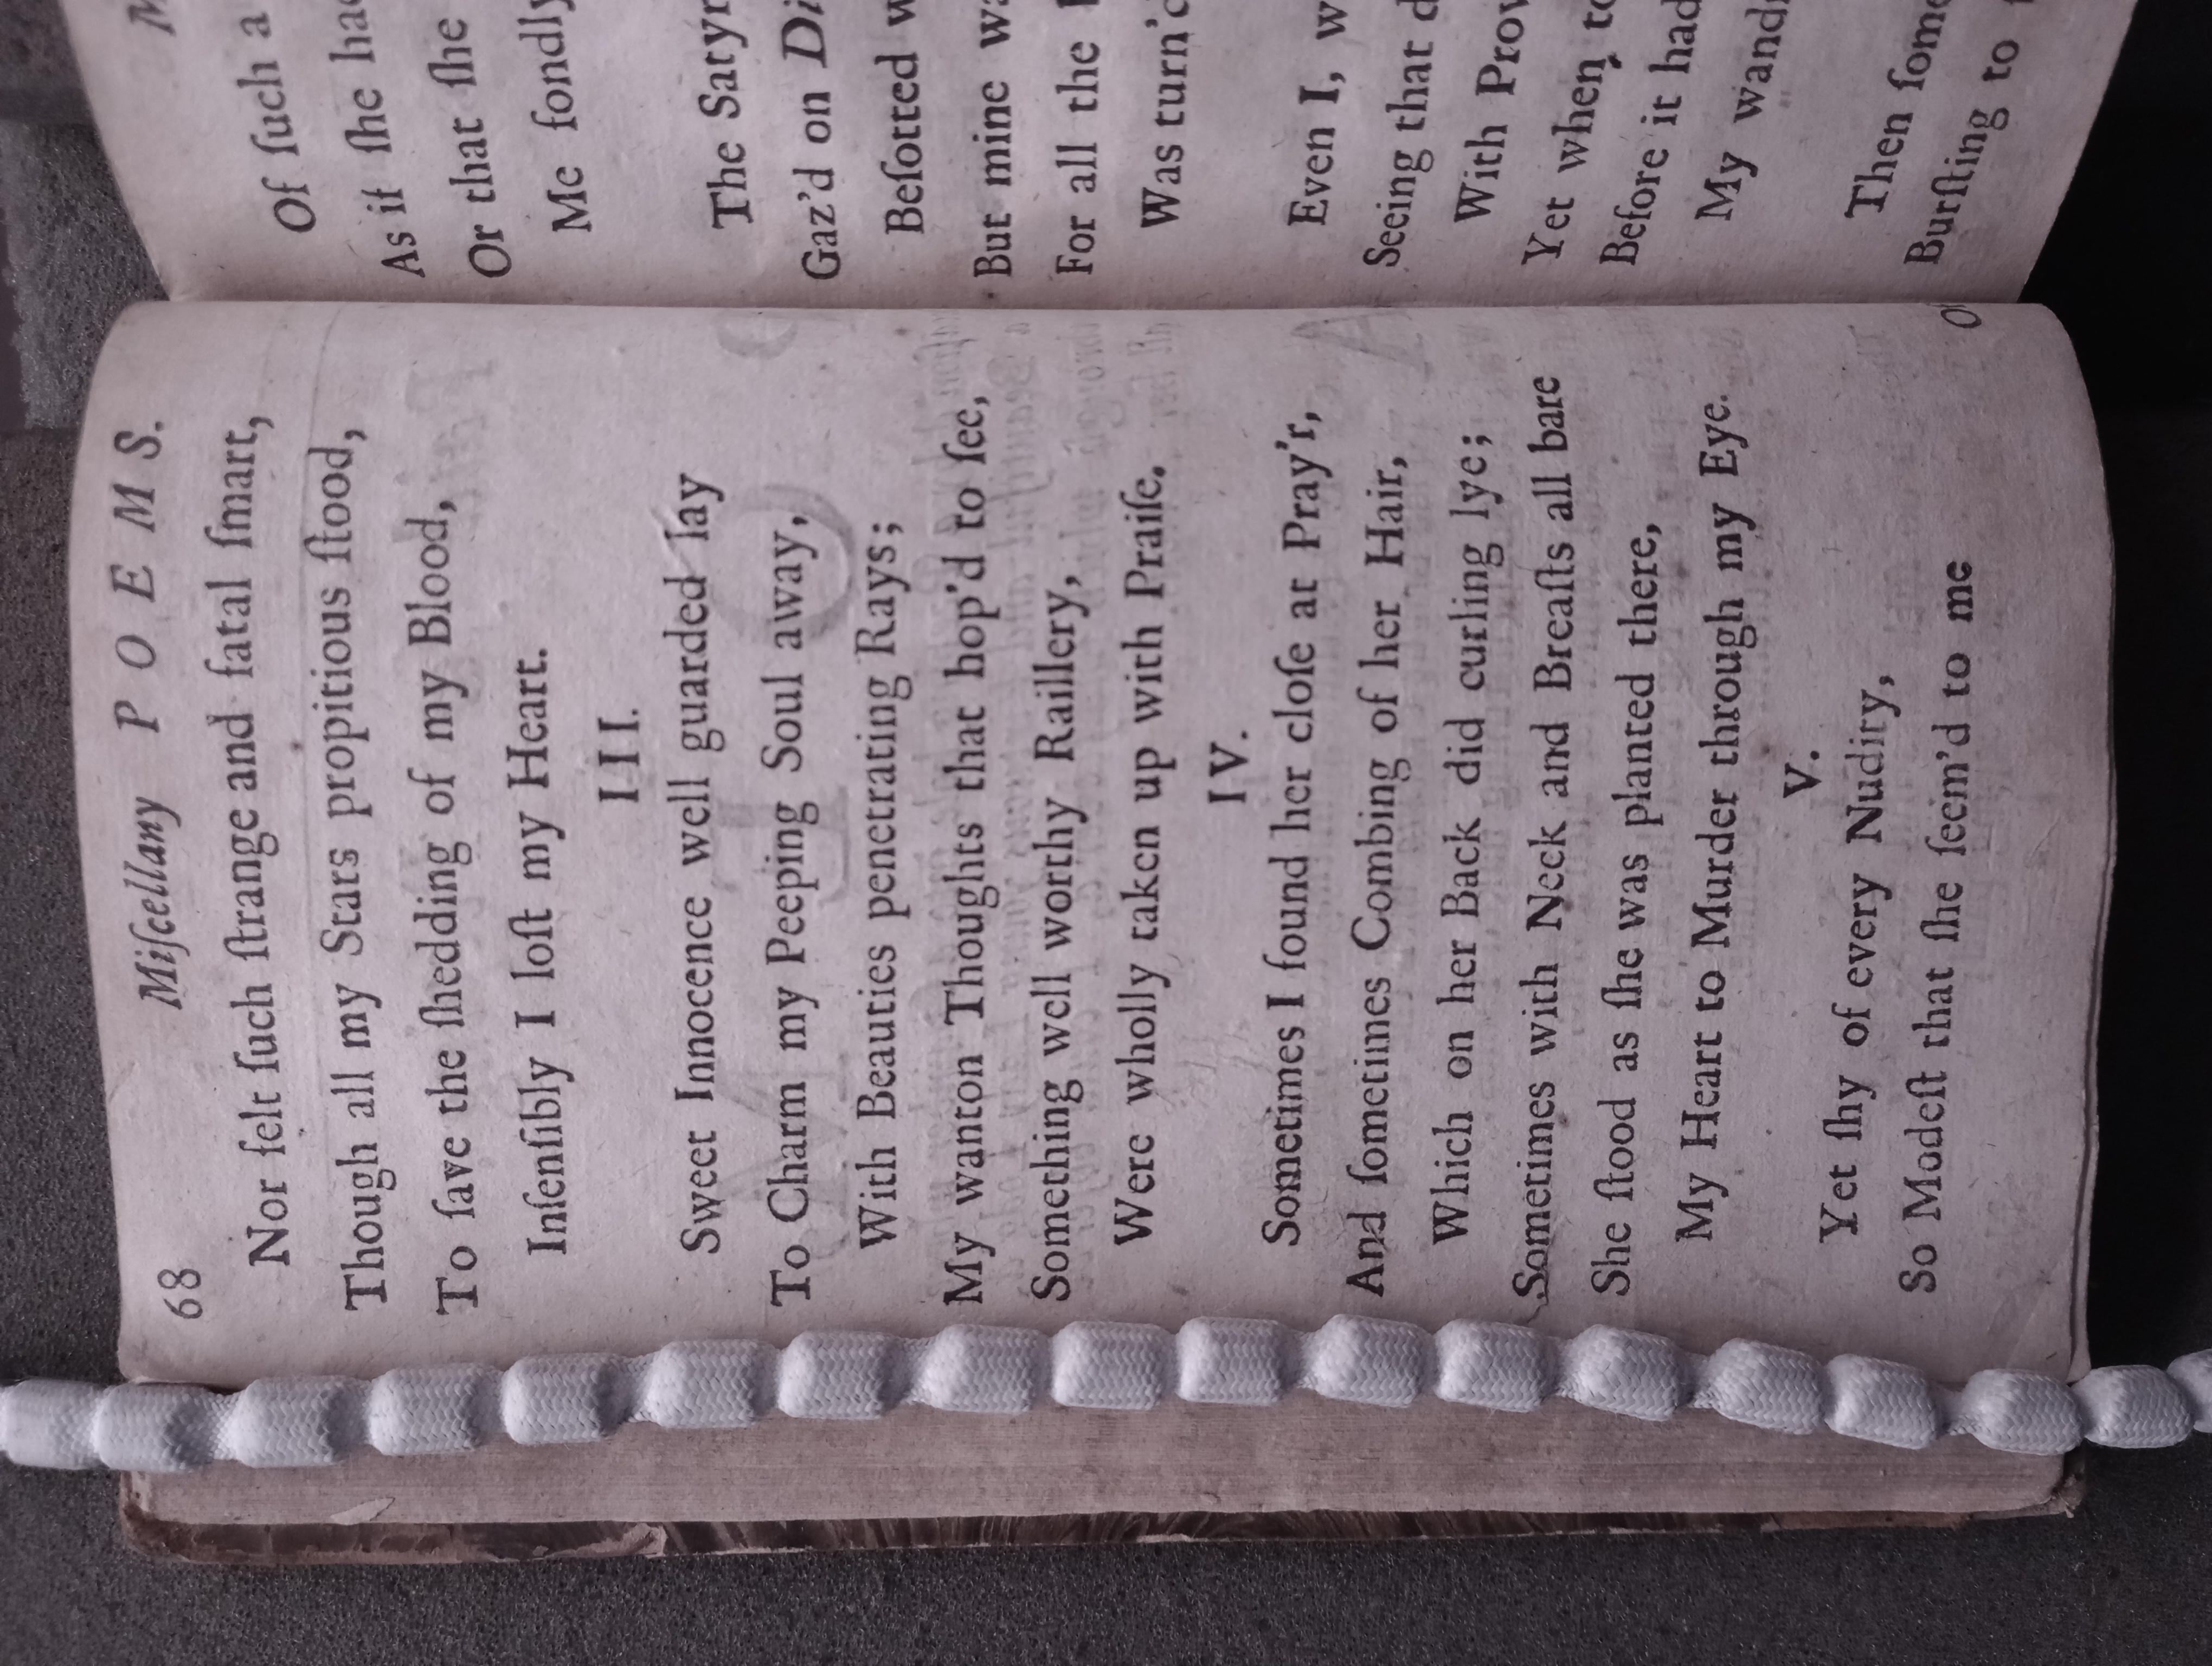 68 Miſcellany POEMS.
Nor felt ſuch ſtrange and fatal ſmart,
Though all my Stars propitious ſtood,
To ſave the ſhedding of my Blood,
Inſenſibly I loſt my Heart.
III.
Sweet Innocence well guarded lay
To Charm my Peeping Soul away,
With Beauties penetrating Rays;
My wanton Thoughts that hop'd to ſee,
Something well worthy Raillery,
Were wholly taken up with Praiſe.
IV.
Sometimes I found her cloſe at Pray'r,
And ſometimes Combing of her Hair,
Which on her Back did curling lye;
Sometimes with Neck and Breaſts all bare
She ſtood as ſhe was planted there,
My Heart to Murder through my Eye.
V.
Yet ſhy of every Nudity,
So Modeſt that ſhe ſeem'd to me
Of
Of ſuch a
As if ſhe had
Or that ſhe
Me fondly
The Satyr
Gaz'd on
Beſotted
But mine
For all the
Was turn'd
Even I,
Seeing that
With
Yet when
Before it had
My
Then ſome
Burſting to